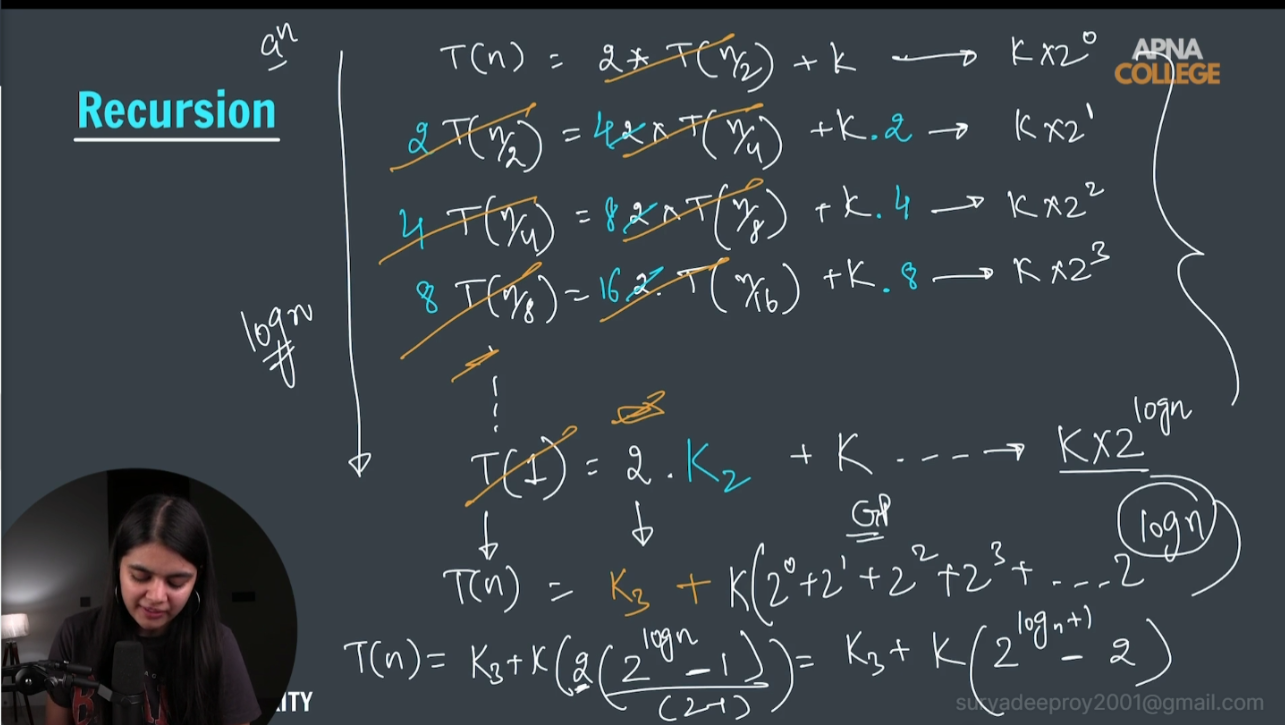 aⁿ
Recursion
APNA
COLLEGE
T(n) = 2 * T(n/2) + K → K×2⁰
2 T(n/2) = 4 2 × T(n/4) + K.2 → K×2¹
4 T(n/4) = 8 2 × T(n/8) + K.4 → K×2²
8 T(n/8) = 16 2. T(n/16) + K.8 → K×2³
logn
T(1) = 2 . K₂ + K ....---→ K×2^logn
GP
logn
T(n) = K₃ + K(2⁰+2¹+2²+2³+ ....2^logn
T(n) = K₃+K(2(2^logn - 1)/(2-1)) = K₃+ K(2^logn+1 - 2)
ITY
suryadeeproy2001@gmail.com